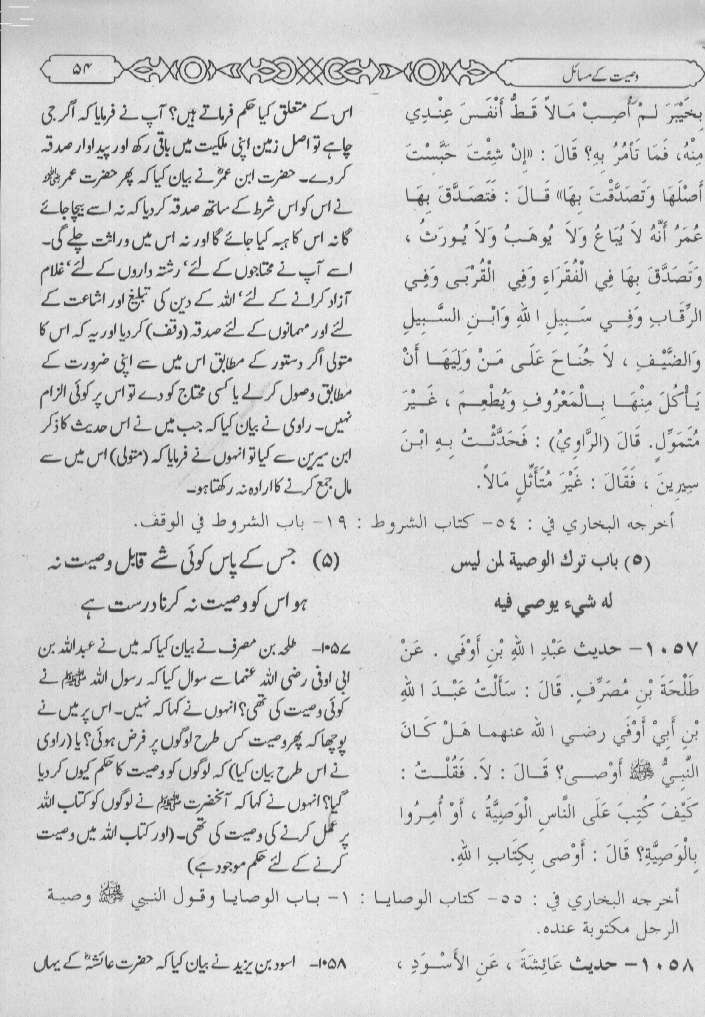 وصیت کے مسائل
۵۴
بِخَيْبَرَ لَمْ أُصِبْ مَالاً قَطُّ أَنْفَسَ عِنْدِي
مِنْهُ، فَمَا تَأْمُرُ بِهِ؟ قَالَ : «إِنْ شِئْتَ حَبَّسْتَ
أَصْلَهَا وَتَصَدَّقْتَ بِهَا» قَالَ : فَتَصَدَّقَ بِهَا
عُمَرُ أَنَّهُ لاَ يُبَاعُ وَلاَ يُوهَبُ وَلاَ يُورَثُ ،
وَتَصَدَّقَ بِهَا فِي الْفُقَرَاءِ وَفِي الْقُرْبَى وَفِي
الرِّقَابِ وَفِي سَبِيلِ اللهِ وَابْنِ السَّبِيلِ
وَالضَّيْفِ ، لاَ جُنَاحَ عَلَى مَنْ وَلِيَهَا أَنْ
يَأْكُلَ مِنْهَا بِالْمَعْرُوفِ وَيُطْعِمَ ، غَيْرَ
مُتَمَوِّلٍ. قَالَ (الرَّاوِيُ) : فَحَدَّثْتُ بِهِ ابْنَ
سِيرِينَ ، فَقَالَ : غَيْرَ مُتَأَثِّلٍ مَالاً.
اس کے متعلق کیا حکم فرماتے ہیں؟ آپ نے فرمایا کہ اگر جی
چاہے تو اصل زمین اپنی ملکیت میں باقی رکھ اور پیداوار صدقہ
کر دے۔ حضرت ابن عمرؓ نے بیان کیا کہ پھر حضرت عمر رضی اللہ عنہ
نے اس کو اس شرط کے ساتھ صدقہ کر دیا کہ نہ اسے بیچا جائے
گا نہ اس کا ہبہ کیا جائے گا اور نہ اس میں وراثت چلے گی۔
اسے آپ نے محتاجوں کے لئے، رشتہ داروں کے لئے، غلام
آزاد کرانے کے لئے، اللہ کے دین کی تبلیغ اور اشاعت کے
لئے اور مہمانوں کے لئے صدقہ (وقف) کر دیا اور یہ کہ اس کا
متولی اگر دستور کے مطابق اس میں سے اپنی ضرورت کے
مطابق وصول کر لے یا کسی محتاج کو دے تو اس پر کوئی الزام
نہیں۔ راوی نے بیان کیا کہ جب میں نے اس حدیث کا ذکر
ابن سیرین سے کیا تو انہوں نے فرمایا کہ (متولی) اس میں سے
مال جمع کرنے کا ارادہ نہ رکھتا ہو۔
أخرجه البخاري في : ٥٤- كتاب الشروط : ١٩- باب الشروط في الوقف.
(٥) باب ترك الوصية لمن ليس
له شيء يوصي فيه
(۵) جس کے پاس کوئی شے قابل وصیت نہ
ہو اس کو وصیت نہ کرنا درست ہے
١٠٥٧- حديث عَبْدِ اللهِ بْنِ أَوْفَي . عَنْ
طَلْحَةَ بْنِ مُصَرِّفٍ. قَالَ : سَأَلْتُ عَبْدَ اللهِ
بْنِ أَبِيْ أَوْفَي رضي الله عنهما هَلْ كَانَ
النَّبِيُّ ﷺ أَوْصى؟ قَالَ : لاَ. فَقُلْتُ :
كَيْفَ كُتِبَ عَلَى النَّاسِ الْوَصِيَّةُ ، أَوْ أُمِرُوا
بِالْوَصِيَّةِ؟ قَالَ : أَوْصى بِكِتَابِ اللهِ.
۱۰۵۷- طلحہ بن مصرف نے بیان کیا کہ میں نے عبداللہ بن
ابی اوفی رضی اللہ عنہما سے سوال کیا کہ رسول اللہ ﷺ نے
کوئی وصیت کی تھی؟ انہوں نے کہا کہ نہیں۔ اس پر میں نے
پوچھا کہ پھر وصیت کس طرح لوگوں پر فرض ہوئی؟ یا (راوی
نے اس طرح بیان کیا) کہ لوگوں کو وصیت کا حکم کیوں کر دیا
گیا؟ انہوں نے کہا کہ آنحضرت ﷺ نے لوگوں کو کتاب اللہ
پر عمل کرنے کی وصیت کی تھی۔ (اور کتاب اللہ میں وصیت
کرنے کے لئے حکم موجود ہے)
أخرجه البخاري في : ٥٥- كتاب الوصايا : ١- باب الوصايا وقول النبي ﷺ وصية
الرجل مكتوبة عنده.
١٠٥٨- حديث عَائِشَةَ ، عَنِ الأَسْوَدِ ،
۱۰۵۸- اسود بن یزید نے بیان کیا کہ حضرت عائشہؓ کے یہاں